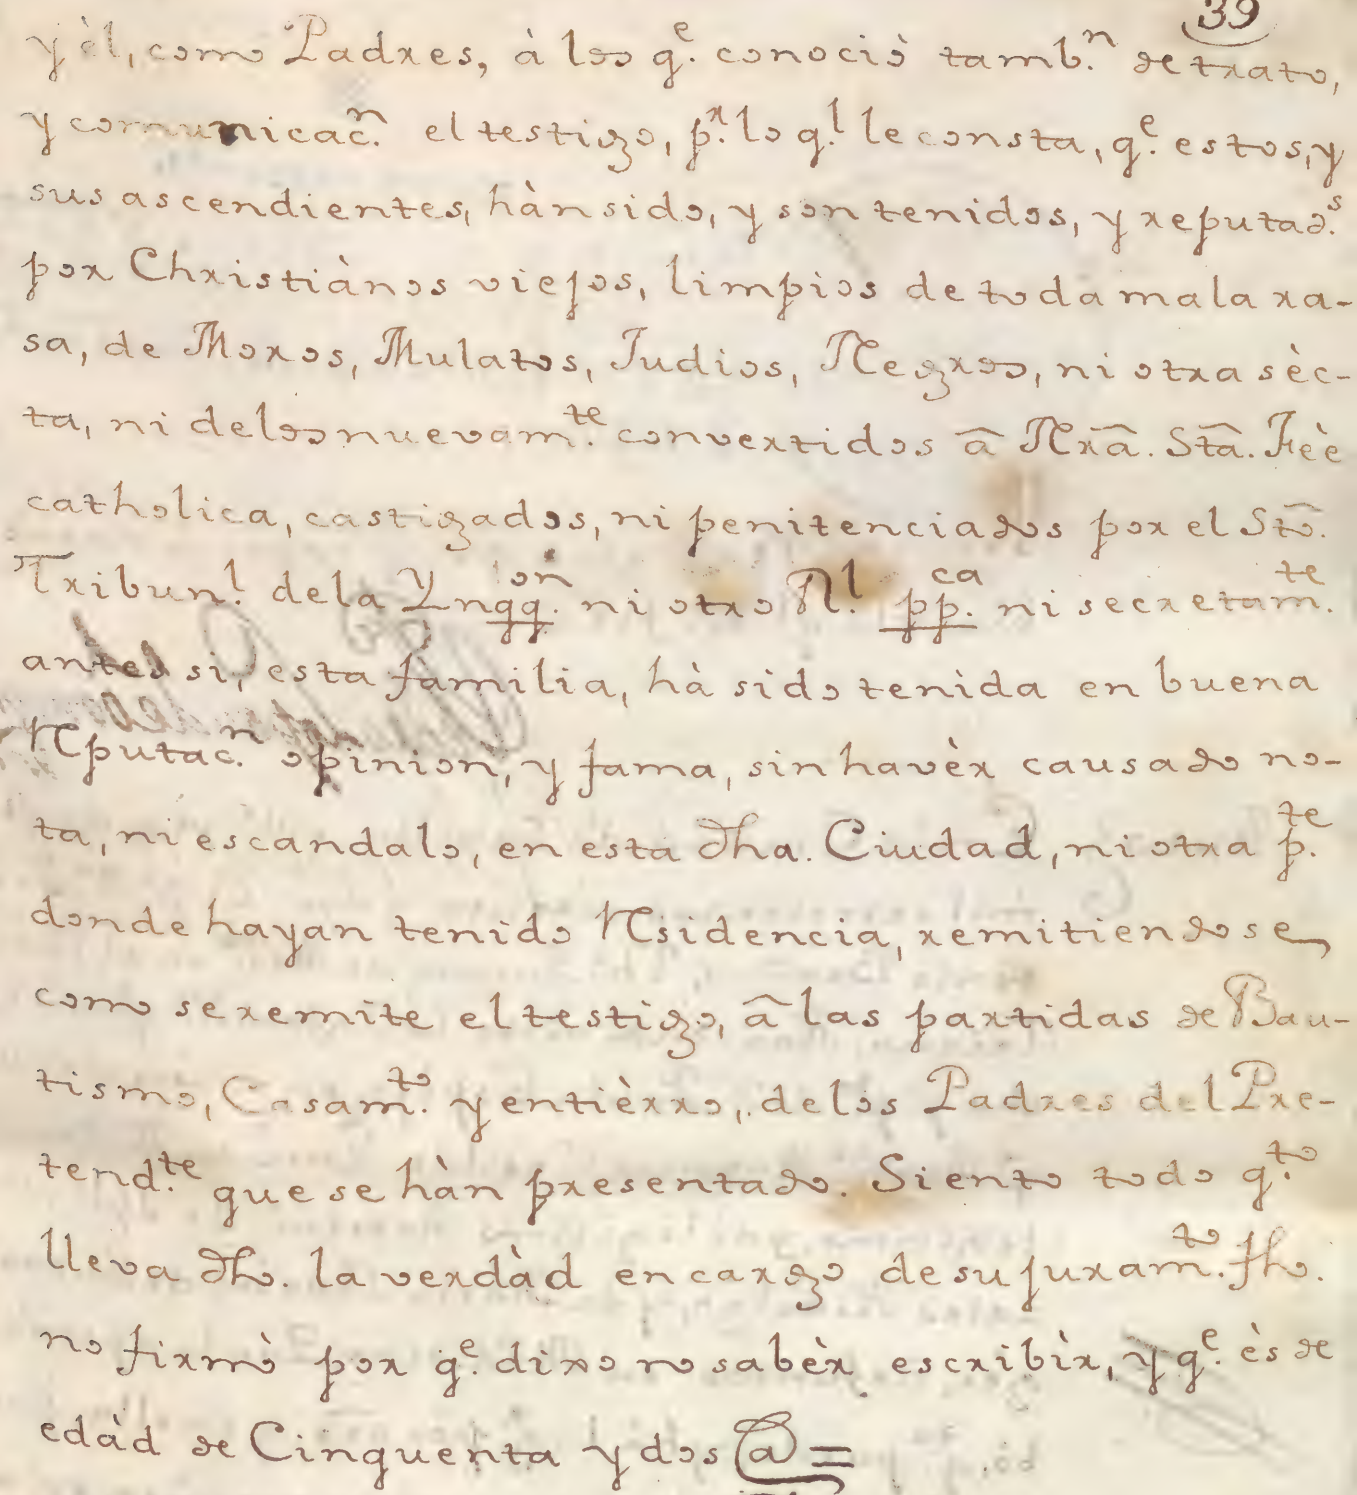 39
y èl, como Padres, à los q.e conociò tamb.n de trato,
y comunicac.n el testigo, p.r lo q.l le consta, q.e estos, y
sus ascendientes, hàn sido, y son tenidos, y reputad.s
por Christiànos viejos, limpios de toda mala ra-
sa, de Moros, Mulatos, Judios, Negros, ni otra sèc-
ta, ni delos nuevam.te convertidos â Nrâ. Stâ. Feè
catholica, castigados, ni penitenciados por el Stô.
Tribun.l dela Ynqq.on ni otro R.l pp.ca ni secretam.te
antes si, esta fàmilia, hà sido tenida en buena
Rputac.n opinion, y fama, sin havèr causado no-
ta, ni escandalo, en esta dha. Ciudad, ni otra p.te
donde hayan tenido Rsidencia, remitiendose
como se remite el testigo, â las partidas de Bau-
tismo, Casam.to y entièrro, delos Padres del Pre-
tend.te que se hàn presentado. Siento todo q.to
lleva dho. la verdàd en cargo de su juram.to fho.
no firmò por q.e dixo no sabèr escribìr, y q.e ès de
edàd de Cinquenta y dos a =